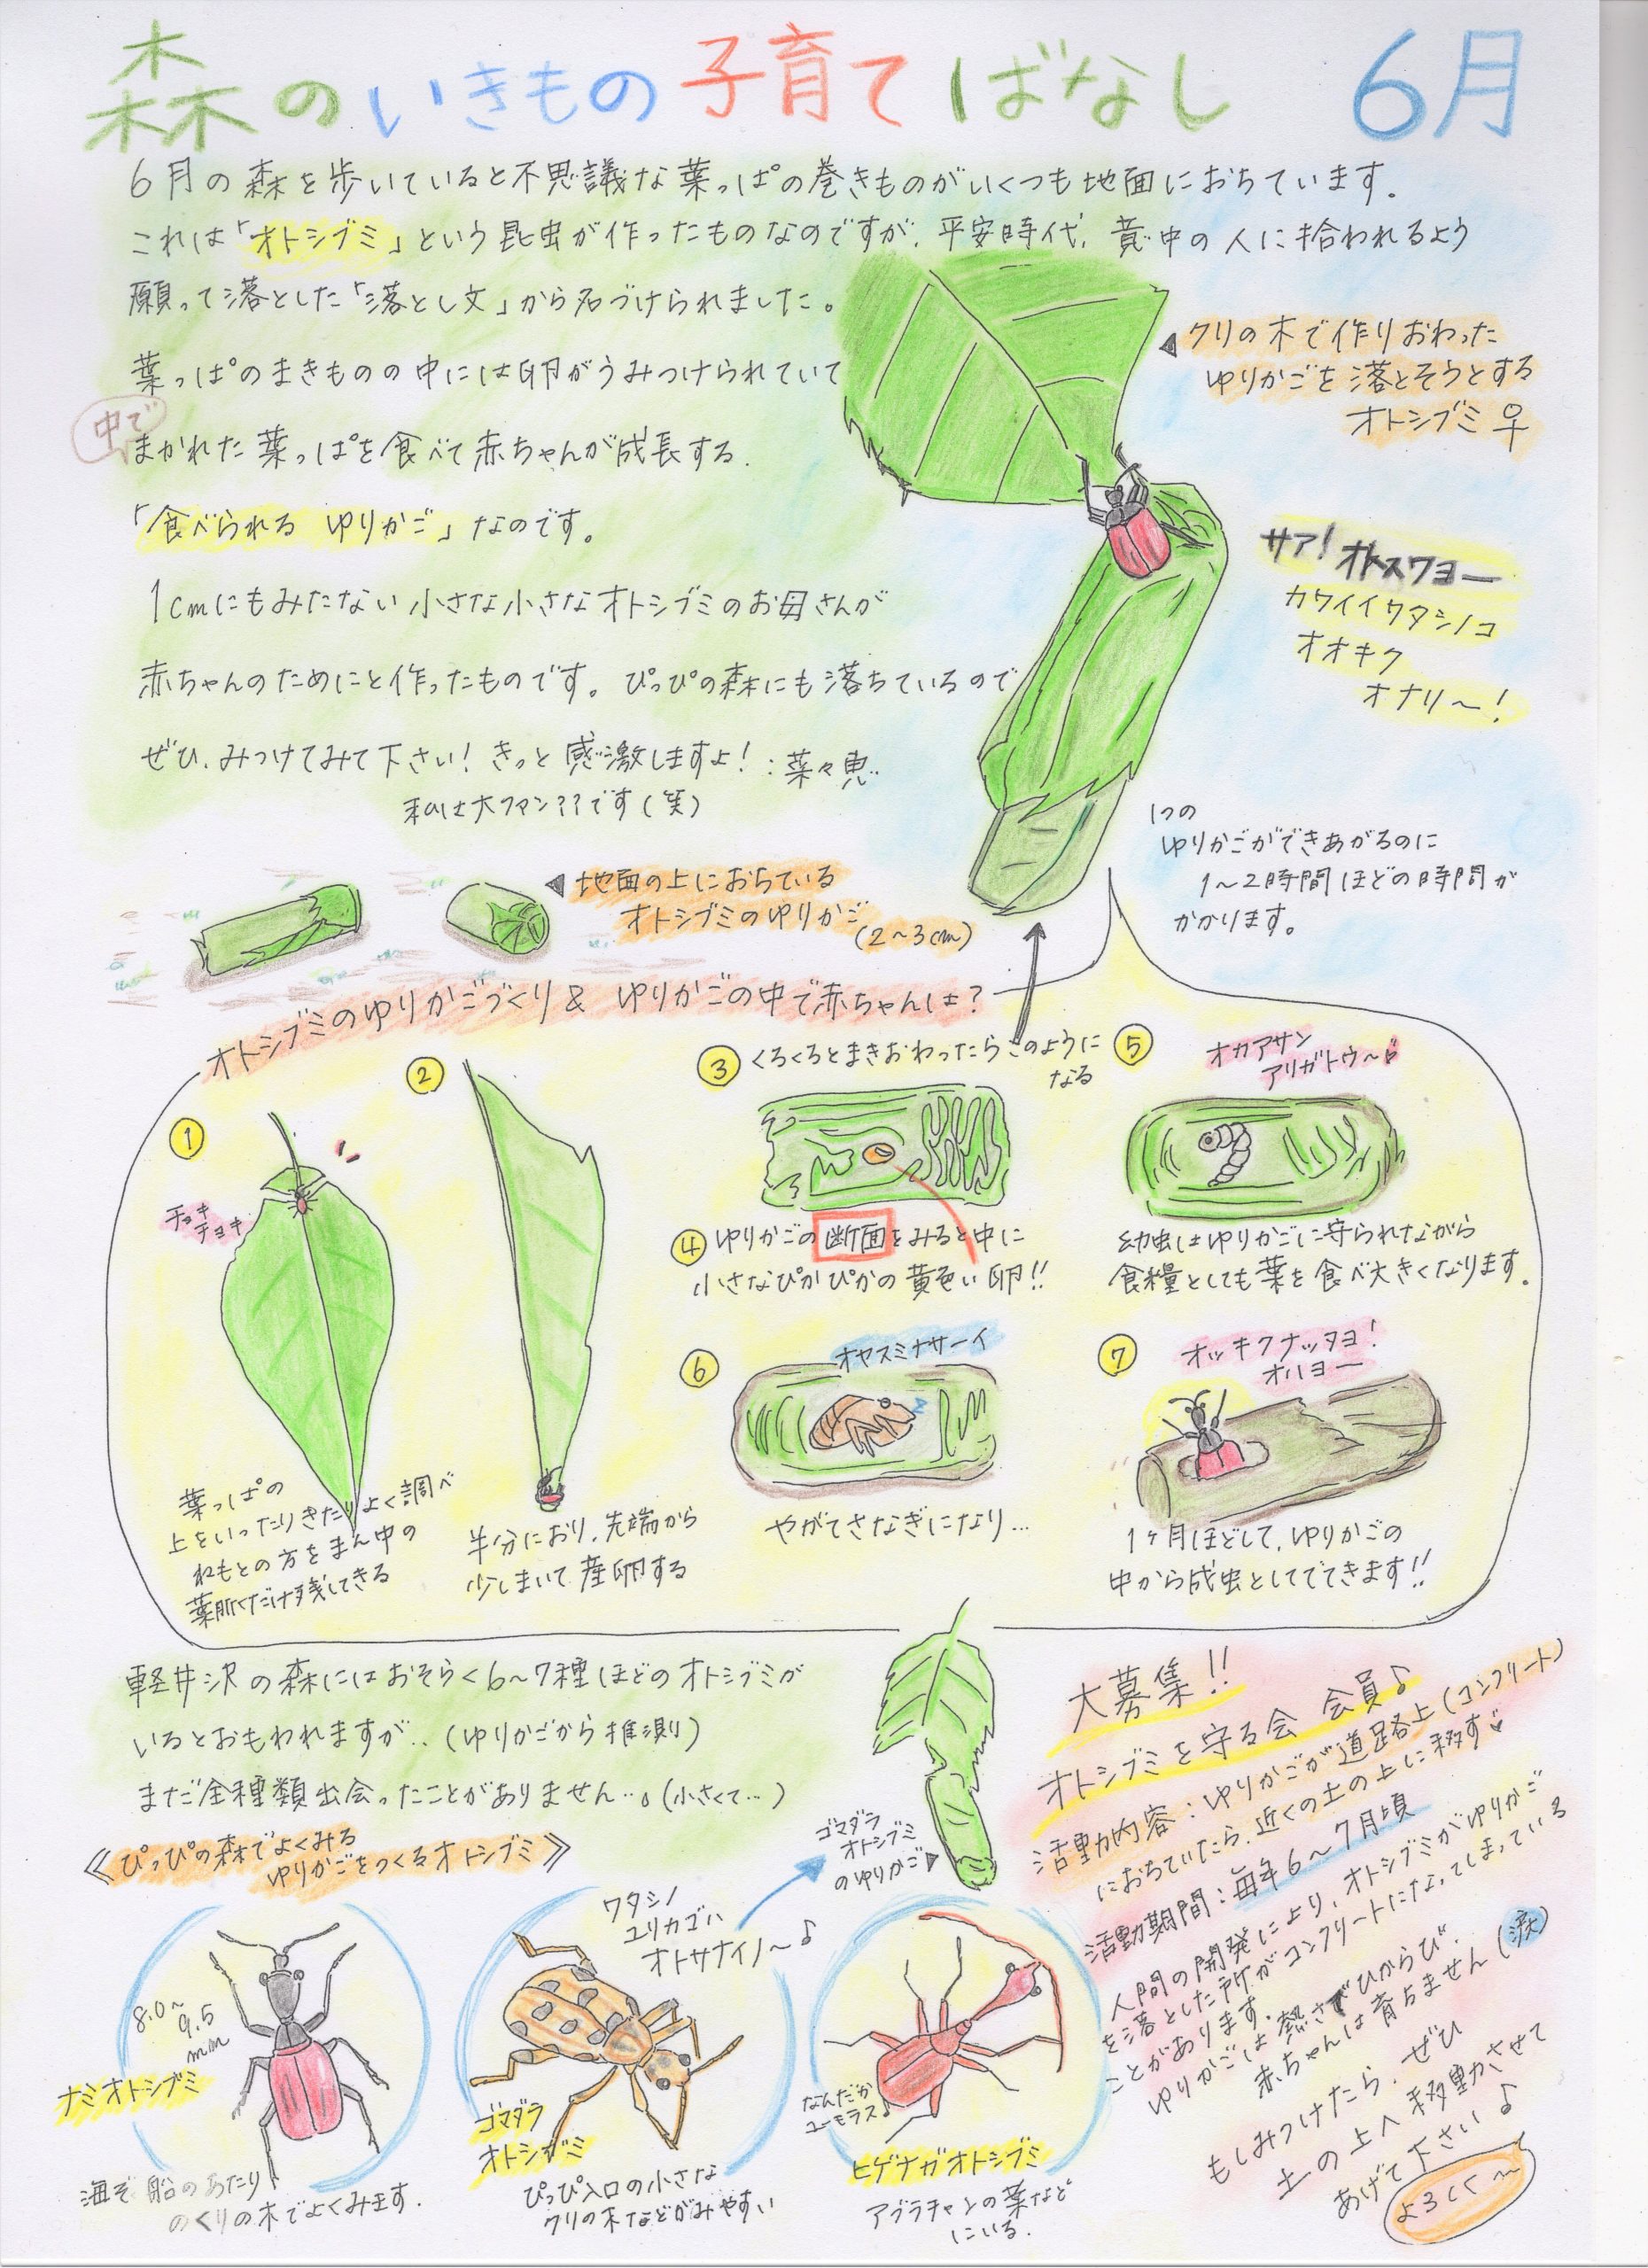 森のいきもの子育てばなし 6月
6月の森を歩いていると不思議な葉っぱの巻きものがいくつも地面におちています.
これは「オトシブミ」という昆虫が作ったものなのですが、平安時代、意中の人に拾われるよう
願って落とした「落とし文」から名づけられました。
葉っぱのまきものの中には卵がうみつけられていて
中で
まかれた葉っぱを食べて赤ちゃんが成長する.
「食べられる ゆりかご」なのです。
1cmにもみたない小さな小さなオトシブミのお母さんが
赤ちゃんのためにと作ったものです。ぴっぴの森にも落ちているので
ぜひ、みつけてみて下さい!きっと感激しますよ!:菜々恵
私は大ファン??です(笑)
クリの木で作りおわった
ゆりかごを落とそうとする
オトシブミ♀
サア!オトスワヨー
カワイイワタシノコ
オオキク
オナリ〜!
1つの
ゆりかごができあがるのに
1〜2時間ほどの時間が
かかります。
地面の上におちている
オトシブミのゆりかご
(2〜3cm)
オトシブミのゆりかごづくり& ゆりかごの中で赤ちゃんは?
①
チョキ
チョキ
葉っぱの
上をいったりきたりよく調べ
ねもとの方をまん中の
葉脈だけ残してきる
②
半分におり、先端から
少しまいて産卵する
③ くるくるとまきおわったらこのように
なる
④ ゆりかごの断面をみると中に
小さなぴかぴかの黄色い卵!!
⑤ オカアサン
アリガトウ〜
幼虫はゆりかごに守られながら
食糧としても葉を食べ大きくなります.
⑥ オヤスミナサーイ
やがてさなぎになり…
⑦ オッキクナッタヨ!
オハヨー
1ヶ月ほどして、ゆりかごの
中から成虫としてでてきます!!
軽井沢の森にはおそらく6〜7種ほどのオトシブミが
いるとおもわれますが..(ゆりかごから推測)
まだ全種類出会ったことがありません…。(小さくて…)
《ぴっぴの森でよくみる
ゆりかごをつくるオトシブミ》
8.0〜
9.5
mm
ナミオトシブミ
海ぞく船のあたり
のくりの木でよくみます.
ワタシノ
ユリカゴハ
オトサナイノ〜♪
ゴマダラ
オトシブミ
のゆりかご
ゴマダラ
オトシブミ
ぴっぴ入口の小さな
クリの木などがみやすい
なんだか
ユーモラス♪
ヒゲナガオトシブミ
アブラチャンの葉など
にいる.
大募集!!
オトシブミを守る会 会員♪
活動内容:ゆりかごが道路上(コンクリート)
におちていたら、近くの土の上に移す♥
活動期間:毎年6〜7月頃
人間の開発により、オトシブミがゆりかご
を落とした所がコンクリートになってしまっている
ことがあります.
ゆりかごは熱さでひからび.
赤ちゃんは育ちません(涙)
もしみつけたら、ぜひ
土の上へ移動させて
あげて下さい♪
よろしく〜